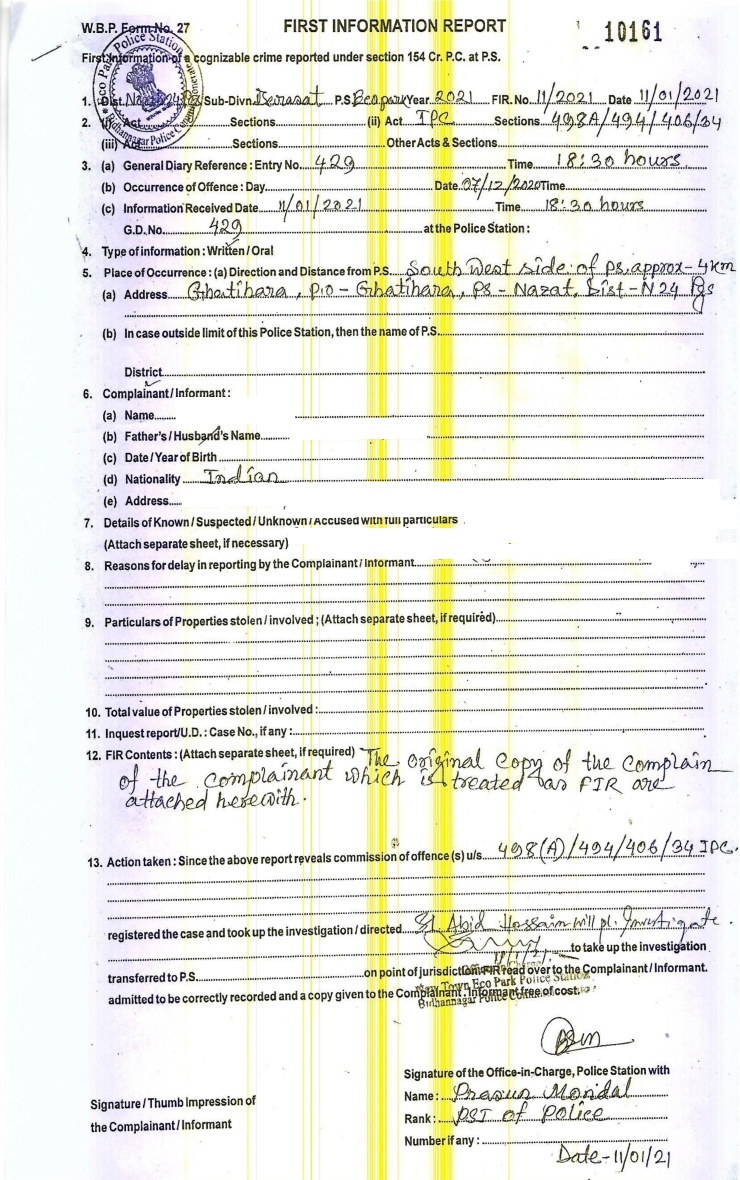 W.B.P. Form No. 27
FIRST INFORMATION REPORT
10161
First Information of a cognizable crime reported under section 154 Cr. P.C. at P.S.
Eco Park Police Station
Bidhannagar Police Commissionerate
1. Dist. Sub-Divn. Barasat P.S. Eco park Year 2021 FIR. No. 11/2021 Date 11/01/2021
2. (i) Act Sections (ii) Act IPC Sections 498A/494/406/34
(iii) Act Sections Other Acts & Sections
3. (a) General Diary Reference : Entry No. 429 Time 18:30 hours
(b) Occurrence of Offence : Day Date 07/12/2020 Time
(c) Information Received Date 11/01/2021 Time 18:30 hours
G.D. No. 429 at the Police Station :
4. Type of information : Written / Oral
5. Place of Occurrence : (a) Direction and Distance from P.S. South West side of PS. approx-4km
(a) Address Ghatihara, P.O - Ghatihara, PS - Nazat, Dist - N 24 Pgs
(b) In case outside limit of this Police Station, then the name of P.S.
District
6. Complainant / Informant :
(a) Name
(b) Father's / Husband's Name
(c) Date / Year of Birth
(d) Nationality Indian
(e) Address
7. Details of Known / Suspected / Unknown / Accused with full particulars
(Attach separate sheet, if necessary)
8. Reasons for delay in reporting by the Complainant / Informant
9. Particulars of Properties stolen / involved ; (Attach separate sheet, if required)
10. Total value of Properties stolen / involved :
11. Inquest report/U.D. : Case No., if any :
12. FIR Contents : (Attach separate sheet, if required) The original Copy of the Complain
of the complainant which is treated as FIR are
attached herewith.
13. Action taken : Since the above report reveals commission of offence (s) u/s. 498(A)/494/406/34 IPC.
registered the case and took up the investigation / directed SI Abid Hossain will pl. Investigate.
11/1/21 to take up the investigation
transferred to P.S. on point of jurisdiction. FIR read over to the Complainant / Informant.
admitted to be correctly recorded and a copy given to the Complainant. Informant free of cost.
New Town Eco Park Police Station
Bidhannagar Police
Signature of the Office-in-Charge, Police Station with
Signature / Thumb Impression of
the Complainant / Informant
Name : Prasun Mondal
Rank : PSI of Police
Number if any :
Date-11/01/21